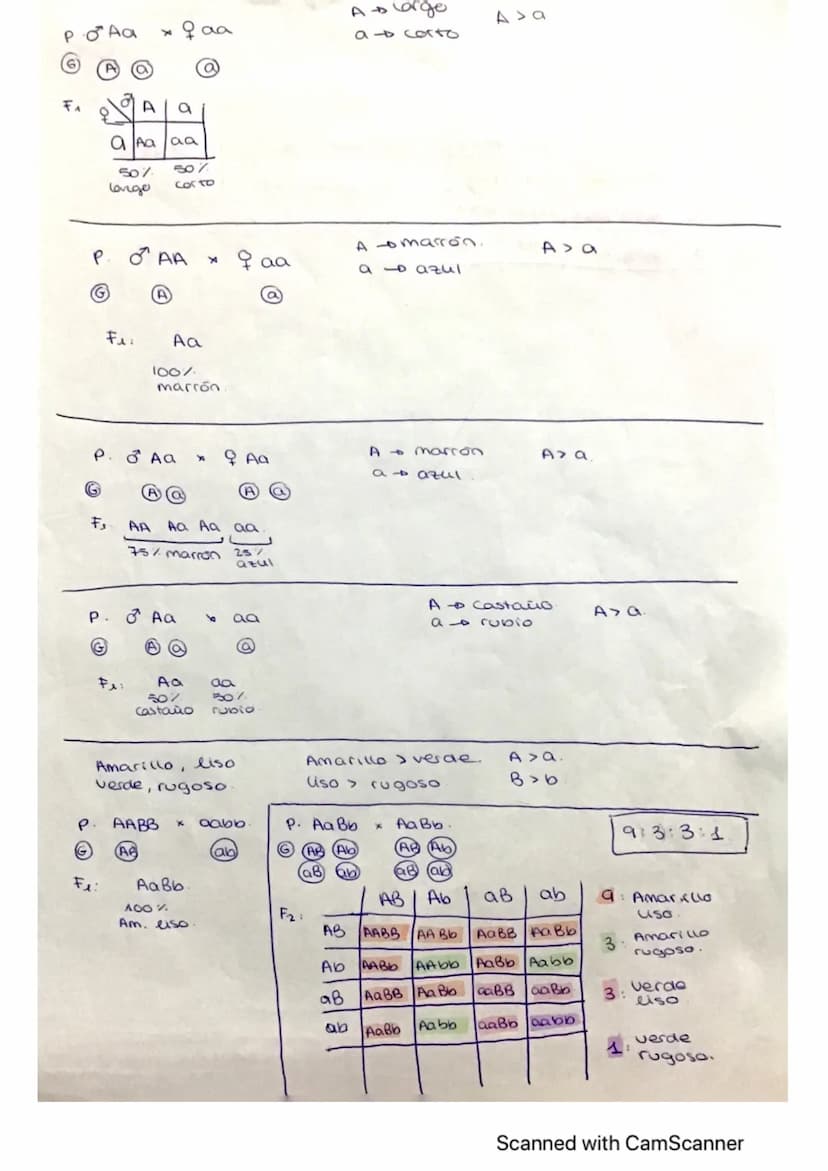 A → largo
A > a
P. ♂ Aa × ♀ aa
a → corto
G A a a
F1 ♀ ♂ A a
a Aa aa
50% 50%
largo corto
P. ♂ AA × ♀ aa
A → marrón.
A > a
a → azul
G A a
F1: Aa
100%
marrón.
P. ♂ Aa × ♀ Aa
A → marrón
A > a.
a → azul.
G A a A a
F1 AA Aa Aa aa.
75% marrón 25%
azul
P. ♂ Aa × aa
A → castaño
A > a.
a → rubio
G A a a
F1: Aa aa
50% 50%
castaño rubio
Amarillo, liso
verde, rugoso.
Amarillo > verde. A > a.
liso > rugoso B > b
P. AABB × aabb.
G AB ab
F1: AaBb.
100%
Am. liso.
P. AaBb × AaBb.
G AB Ab AB Ab
aB ab aB ab
9:3:3:1
F2:
AB Ab aB ab
AB AABB AABb AaBB AaBb
Ab AABb AAbb AaBb Aabb
aB AaBB AaBb aaBB aaBb
ab AaBb Aabb aaBb aabb
9: Amarillo
liso.
3: Amarillo
rugoso.
3: verde
liso
1: verde
rugoso.
Scanned with CamScanner